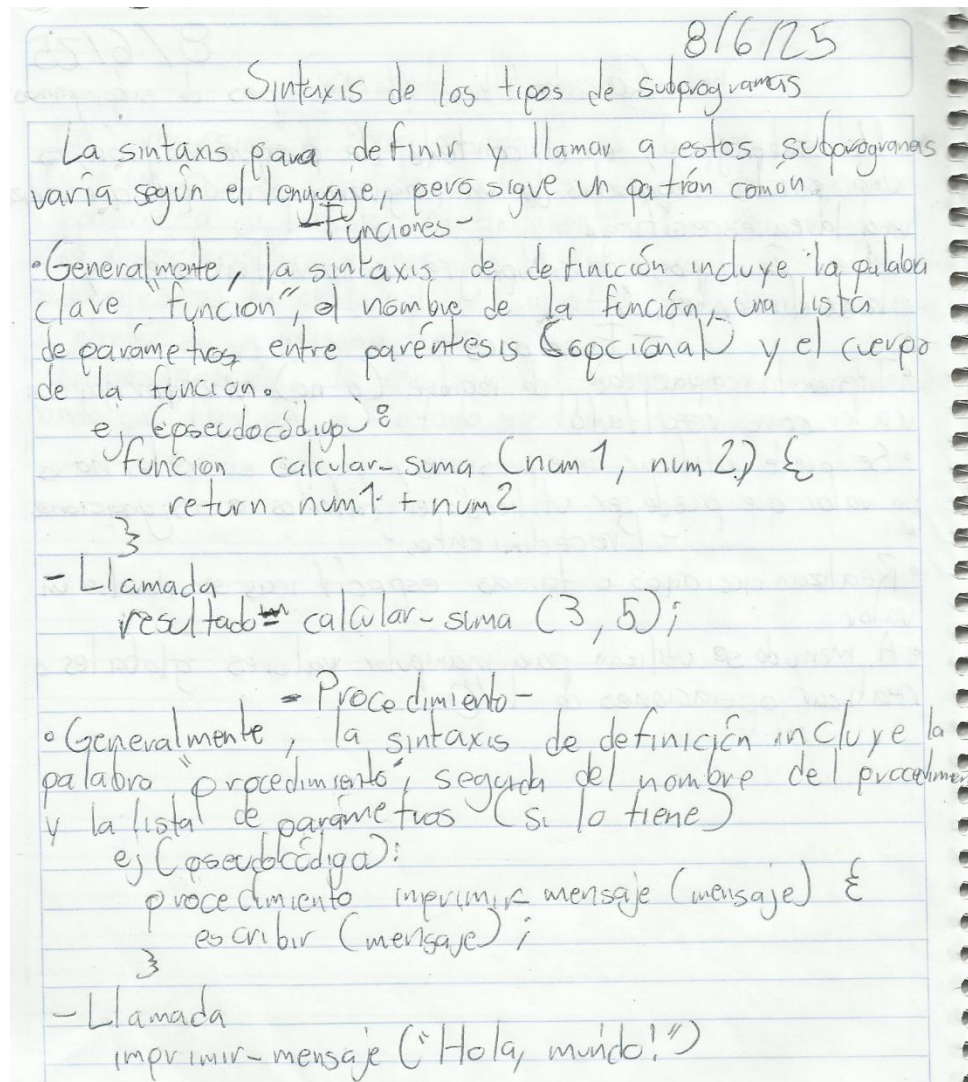 8/6/25
Sintaxis de los tipos de subprogramas
La sintáxis para definir y llamar a estos subprogramas
varía según el lenguaje, pero sigue un patrón común.
-Funciones-
•Generalmente, la sintaxis de definición incluye la palaba
clave "función", el nombre de la función, una lista
de parámetros entre paréntesis (opcional) y el cuerpo
de la función.
ej (pseudocódigo):
función calcular_suma (num1, num2) {
return num1 + num2
}
- Llamada
resultado = calcular_suma (3, 5);
- Procedimiento -
• Generalmente, la sintaxis de definición incluye la
palabra "procedimiento", seguida del nombre del procedimien
y la lista de parámetros (si lo tiene)
ej (pseudocódigo):
procedimiento imprimir_mensaje (mensaje) {
escribir (mensaje);
}
- Llamada
imprimir_mensaje ("Hola, mundo!")